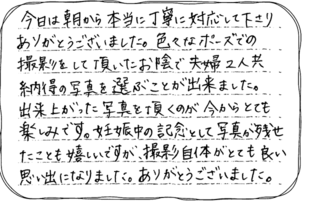 今日は朝から本当に丁寧に対応して下さり
ありがとうございました。色々なポーズでの
撮影をして頂いたお陰で夫婦2人共
納得の写真を選ぶことが出来ました。
出来上がった写真を頂くのが今からとても
楽しみです。妊娠中の記念として写真が残せ
たことも嬉しいですが、撮影自体がとても良い
思い出になりました。ありがとうございました。